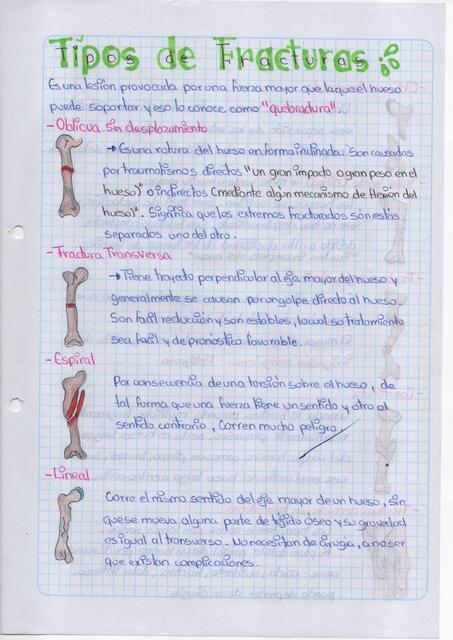 Tipos de Fracturas
Es una lesión provocada por una fuerza mayor que la que el hueso
puede soportar y eso lo conoce como "quebradura".
-Oblicua sin desplazamiento
→ Es una rotura del hueso en forma inclinada. Son causadas
por traumatismos directos "un gran impacto o gran peso en el
hueso)" o indirectos (mediante algún mecanismo de flexión del
hueso)". Significa que los extremos fracturados son estás
separados uno del otro.
-Fractura Transversa
→ Tiene trayecto perpendicular al eje mayor del hueso y
generalmente se causan por un golpe directo al hueso.
Son facil reducción y son estables, lo cual su tratamiento
sea facil y de pronostico favorable.
-Espiral
Por consecuencia de una torsión sobre el hueso, de
tal forma que una fuerza tiene un sentido y otro al
sentido contrario, Corren mucho peligro.
-Lineal
Corre el mismo sentido del eje mayor de un hueso, sin
que se mueva alguna parte de tejido óseo y su gravedad
es igual al transverso. No necesitan de cirugia, a no ser
que existan complicaciones.